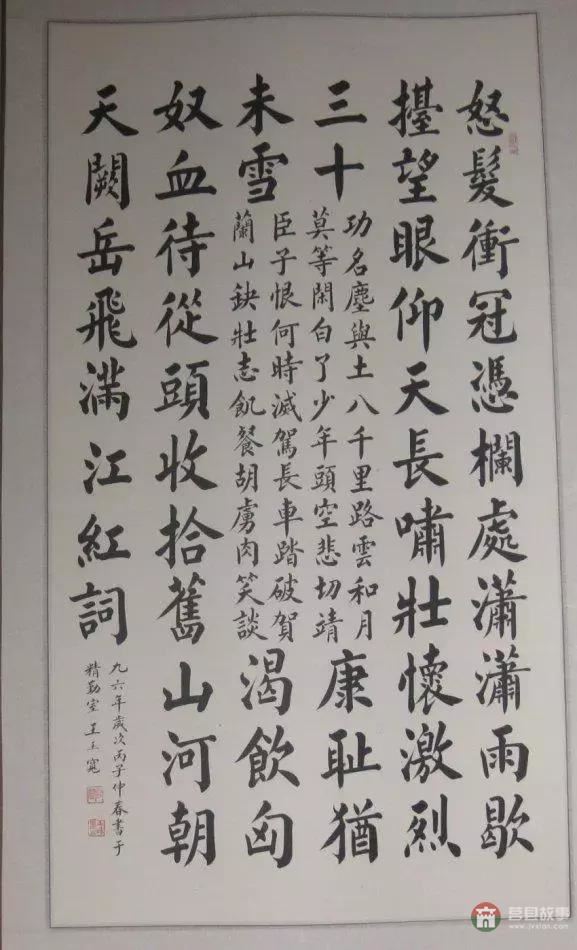 怒髮衝冠憑欄處瀟瀟雨歇
擡望眼仰天長嘯壯懷激烈
三十
功名塵與土八千里路雲和月
莫等閑白了少年頭空悲切靖
康耻猶
未雪
臣子恨何時滅駕長車踏破賀
蘭山缺壯志飢餐胡虜肉笑談
渴飲匈
奴血待從頭收拾舊山河朝
天闕岳飛滿江紅詞
九六年歲次丙子仲春書于
精勤室王玉寬
莒县故事
www.jvxian.com